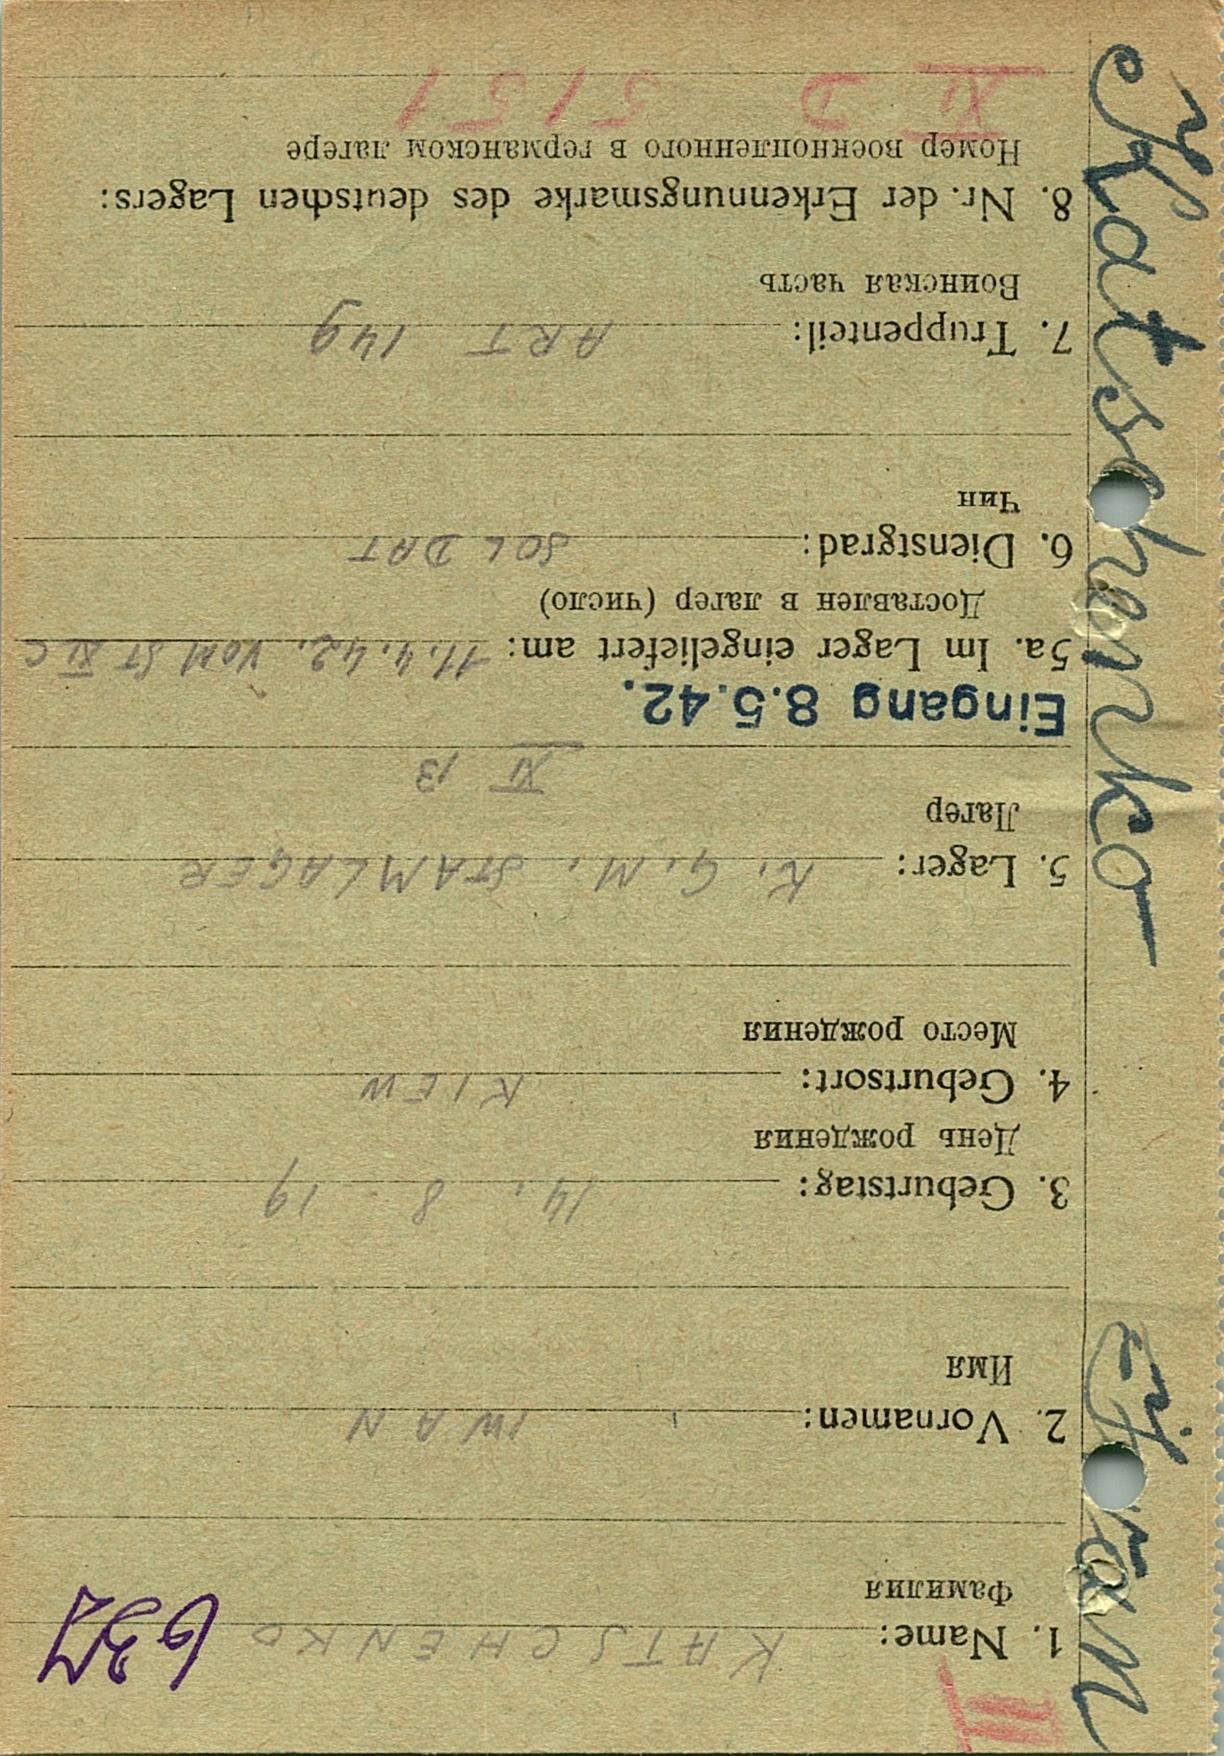 III
1. Name: KATSCHENKO
637
Фамилия
2. Vornamen: IWAN
Имя
3. Geburtstag: 14. 8 19
День рождения
4. Geburtsort: KIEW
Место рождения
5. Lager: K. G. M. STAMLAGER
Лагер
XI 13
Eingang 8.5.42.
5a. Im Lager eingeliefert am: 11.4.42. VOM ST XI C
Доставлен в лагер (число)
6. Dienstgrad: SOLDAT
Чин
7. Truppenteil: ART 149
Воинская часть
8. Nr. der Erkennungsmarke des deutschen Lagers:
Номер военнопленного в германском лагере
XI D 5151
Katschenko Iwan